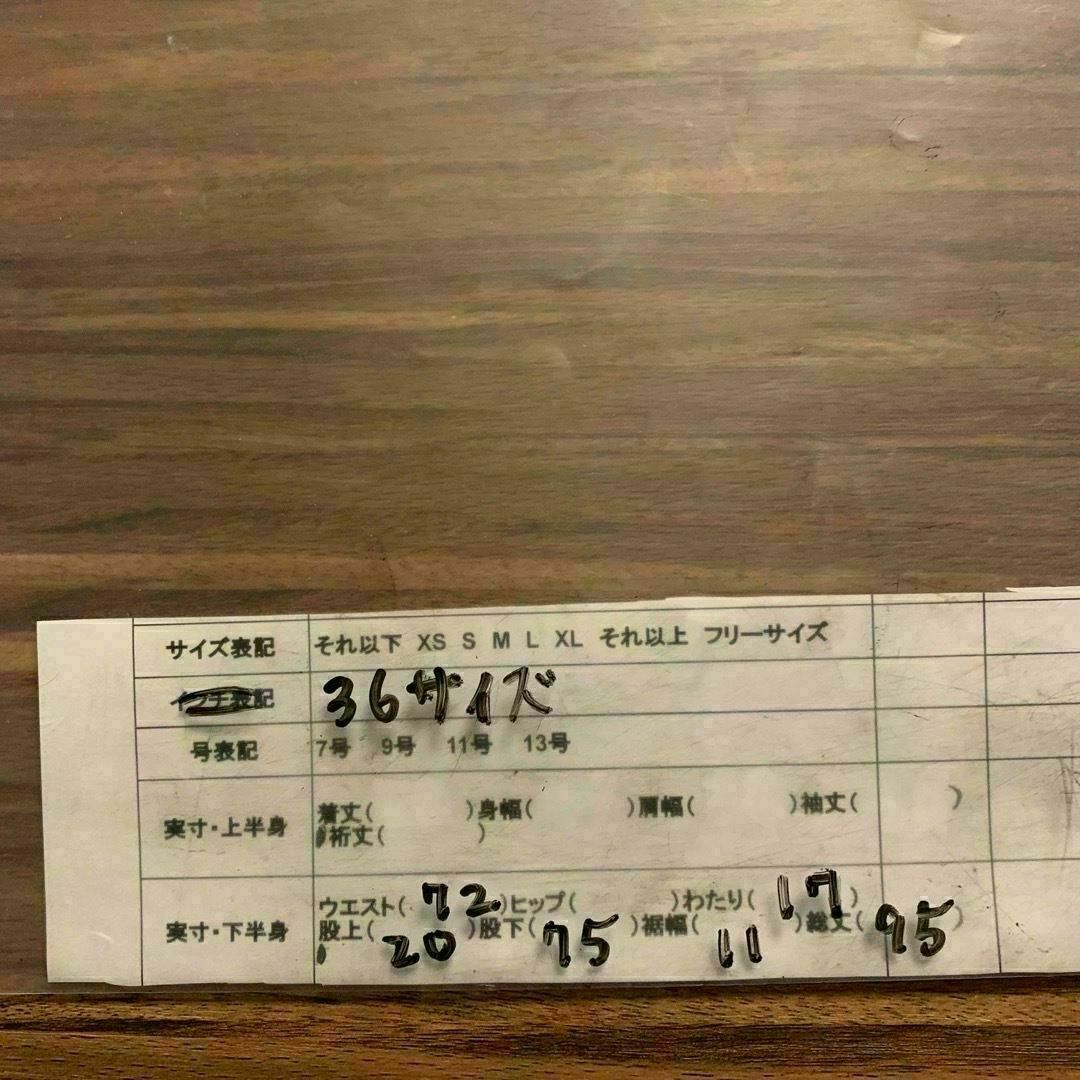 サイズ表記 それ以下 XS S M L XL それ以上 フリーサイズ
インチ表記 36サイズ
号表記 7号 9号 11号 13号
実寸・上半身 着丈( )身幅( )肩幅( )袖丈( )
裄丈( )
実寸・下半身 ウエスト( 72 )ヒップ( )わたり( 17 )
股上( 20 )股下( 75 )裾幅( 11 )総丈( 95 )